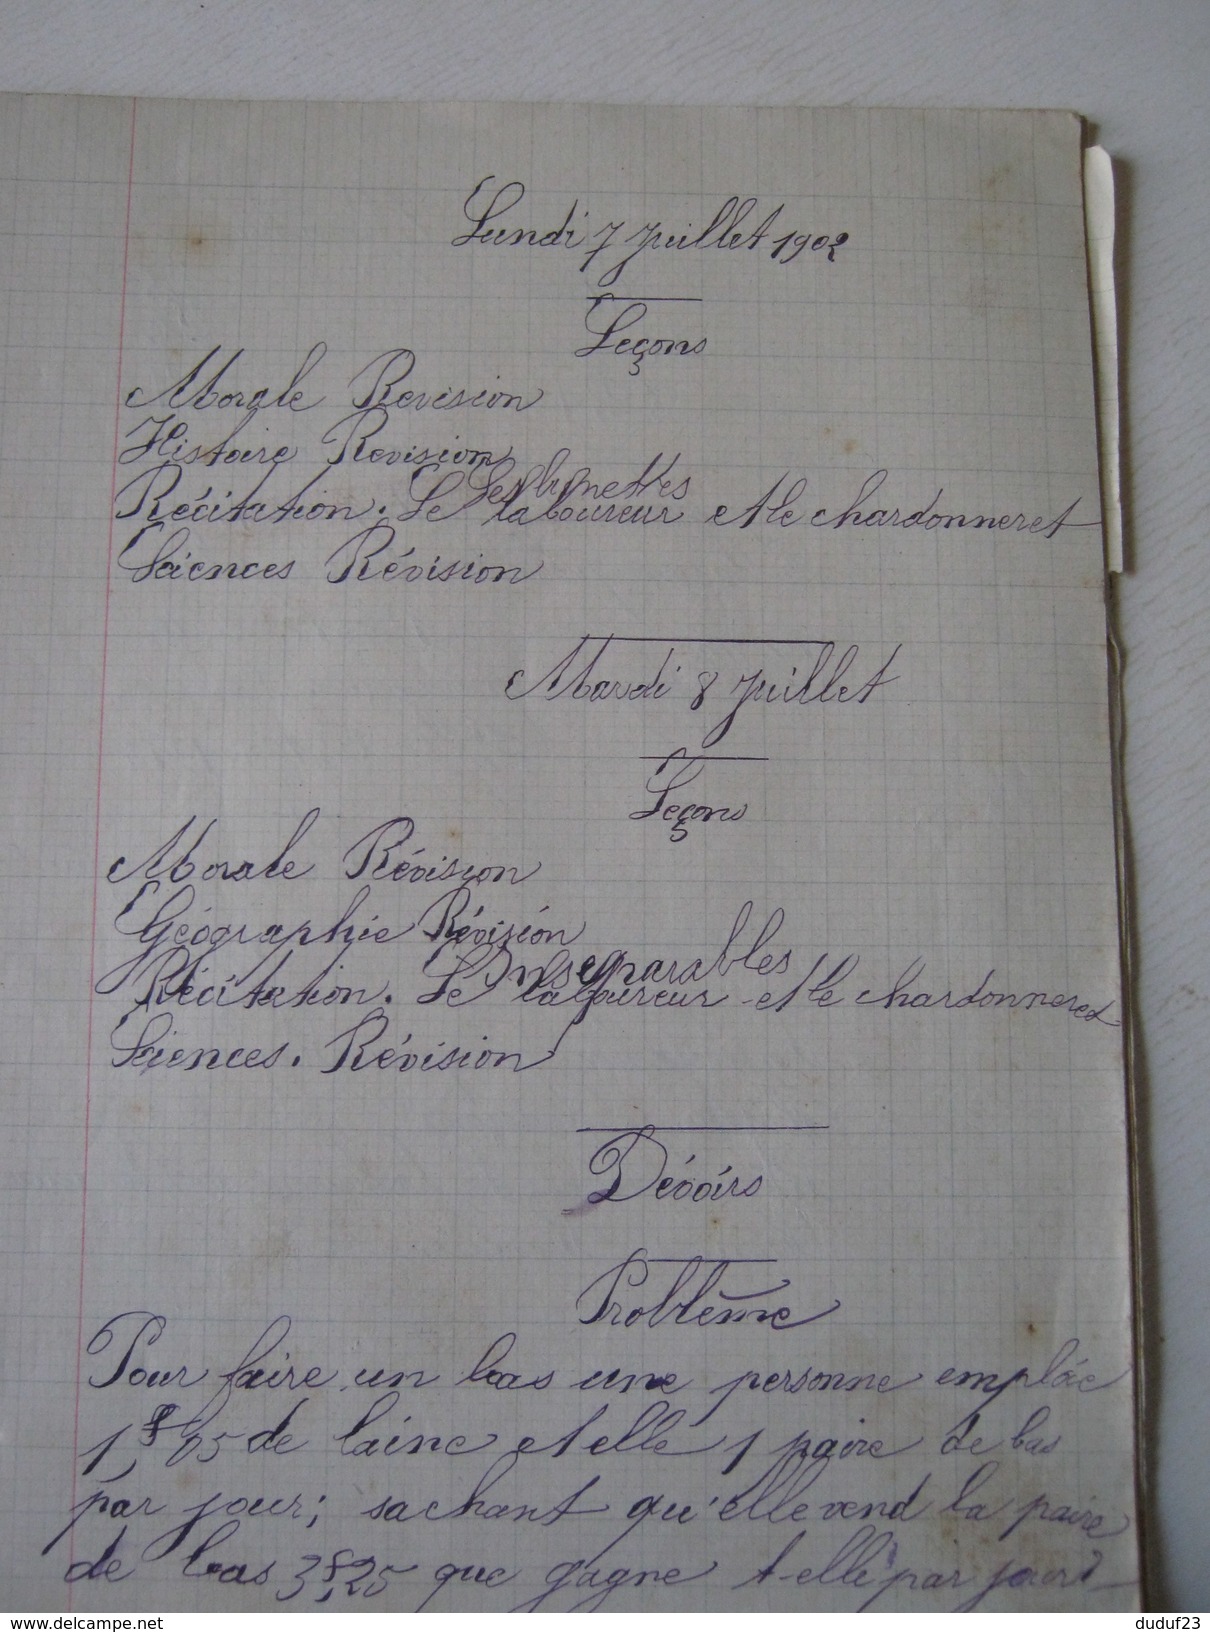 Lundi 7 Juillet 1902
Leçons
Morale Revision
Histoire Revision
Les lunettes
Récitation. Le laboureur et le chardonneret
Sciences Révision
Mardi 8 Juillet
Leçons
Morale Révision
Géographie Révision
Inséparables
Récitation. Le laboureur et le chardonneret
Sciences. Révision
Dévoirs
Problème
Pour faire un bas une personne emploie
1f,25 de laine et elle 1 paire de bas
par jour; sachant qu'elle vend la paire
de bas 3f,25 que gagne t-elle par jour?
delcampe.net
duduf23